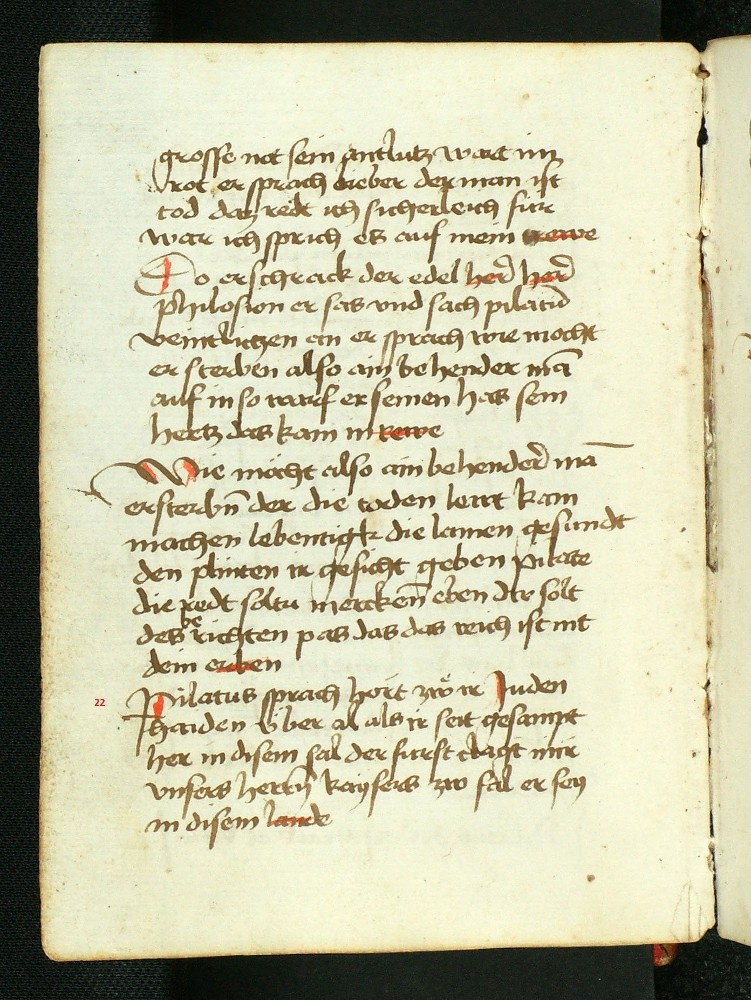 grosse not sein antlutz wart im
rot er sprach lieber der man ist
tod daz redt ich sicherleich fur
war ich sprich es auf mein trewe
Do erschrack der edel herr̄ herr̄
philosion er sas vnd sach pilatū
veintlichen an er sprach wie mocht
er sterben also ain behender mā
auf in so warf er seinen has sein
hertz das kam in rewe
Wie mocht also ain behender̄ mā
ersterbn̄ der die toden leut kam
machen lebentigk die lamen gesundt
den plinten ir gesicht geben pilate
die redt soltu mercken̄ eben dir solt
des be richten pas das das reich ist nit
dein erben
22 Pilatus sprach hort zwͦ ir Juden
haiden v̈ber al als ir seit gesampt
her in disem sal der furst clagt mir
vnsers herrn̄ kaysers zw fal er sey
in disem lande